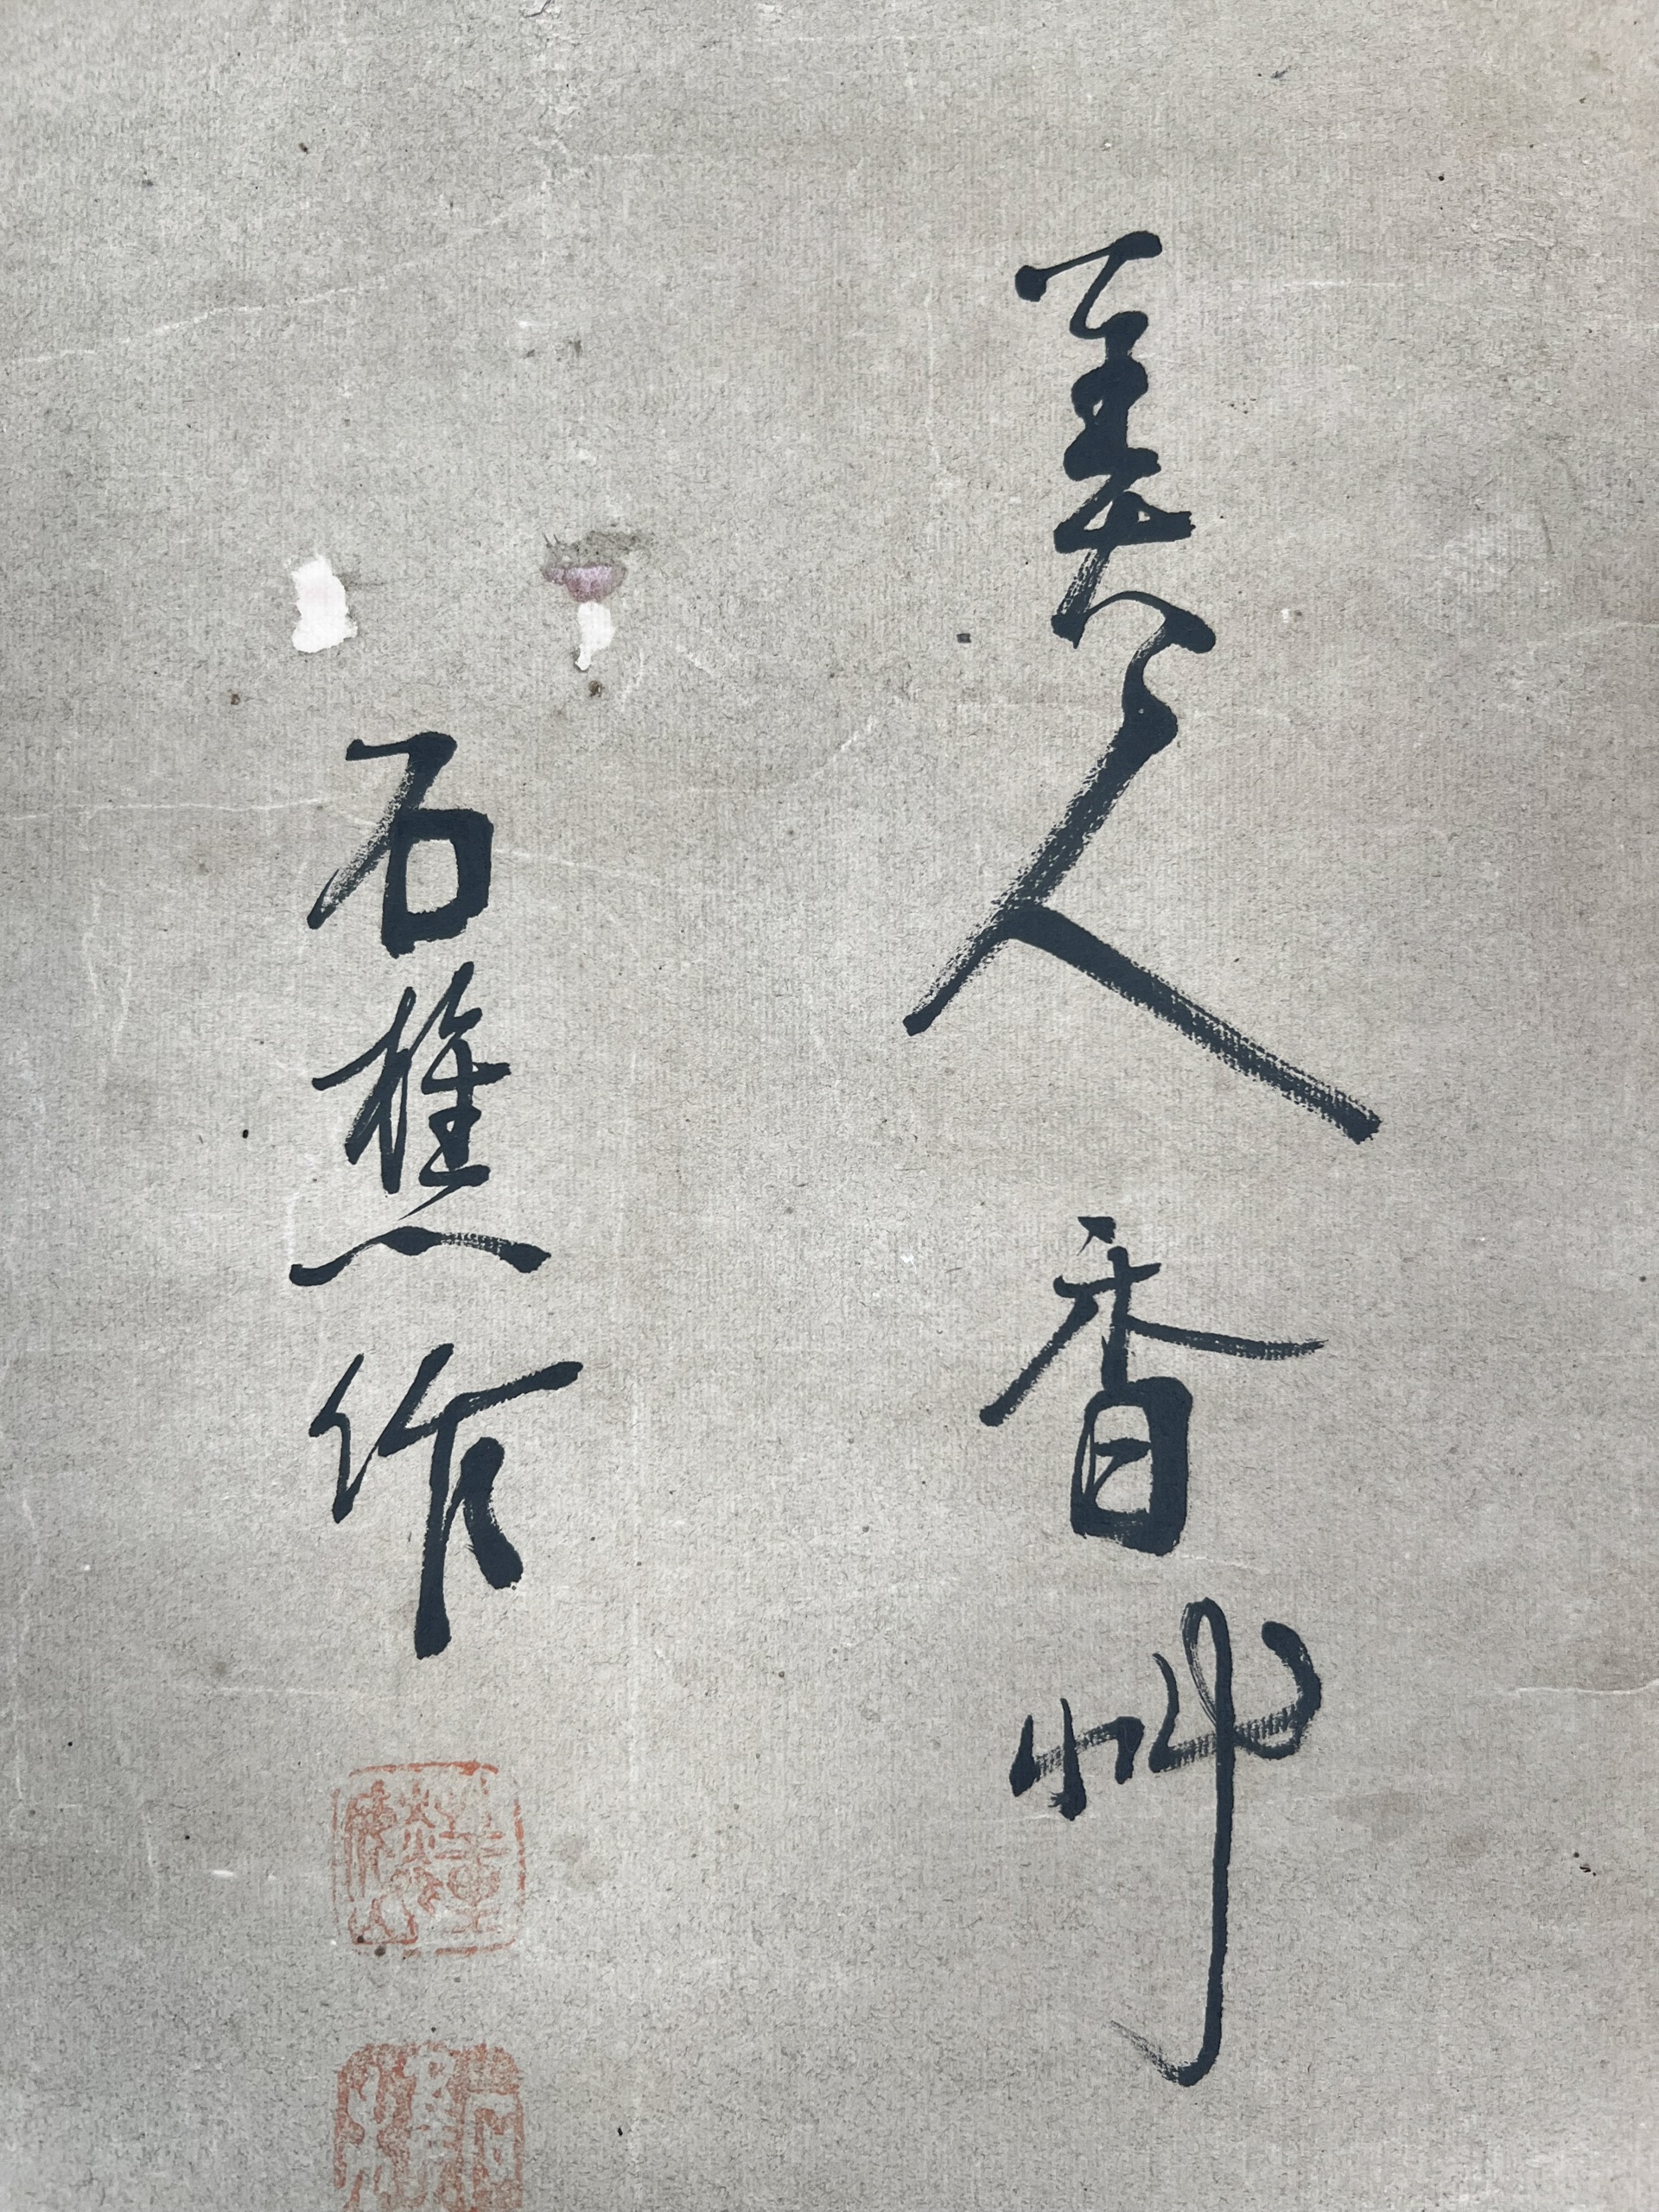 美人香艸
石樵作